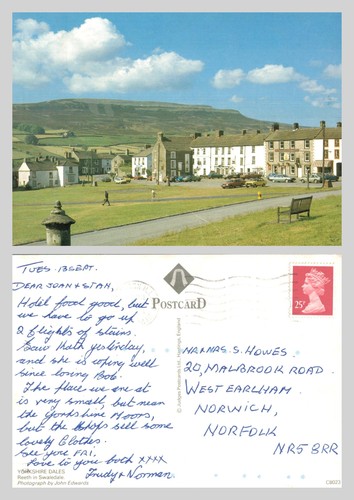 TUES. 13 SEPT.
DEAR JOAN & STAN,
Hotel food good, but
we have to go up
2 flights of stairs.
Saw Ruth yesterday,
and she is coping well
since losing Bob.
The place we are at
is very small, but near
the Yorkshire Moors,
but the shops sell some
lovely Clothes.
See you FRI,
Love to you both xxxx
Trudy & Norman.
YORKSHIRE DALES
Reeth in Swaledale
Photograph by John Edwards
POSTCARD
© J. Arthur Dixon
25P
MR & MRS. S. HOWES
20, MALBROOK ROAD.
WEST EARLHAM
NORWICH,
NORFOLK
NR5 8RR